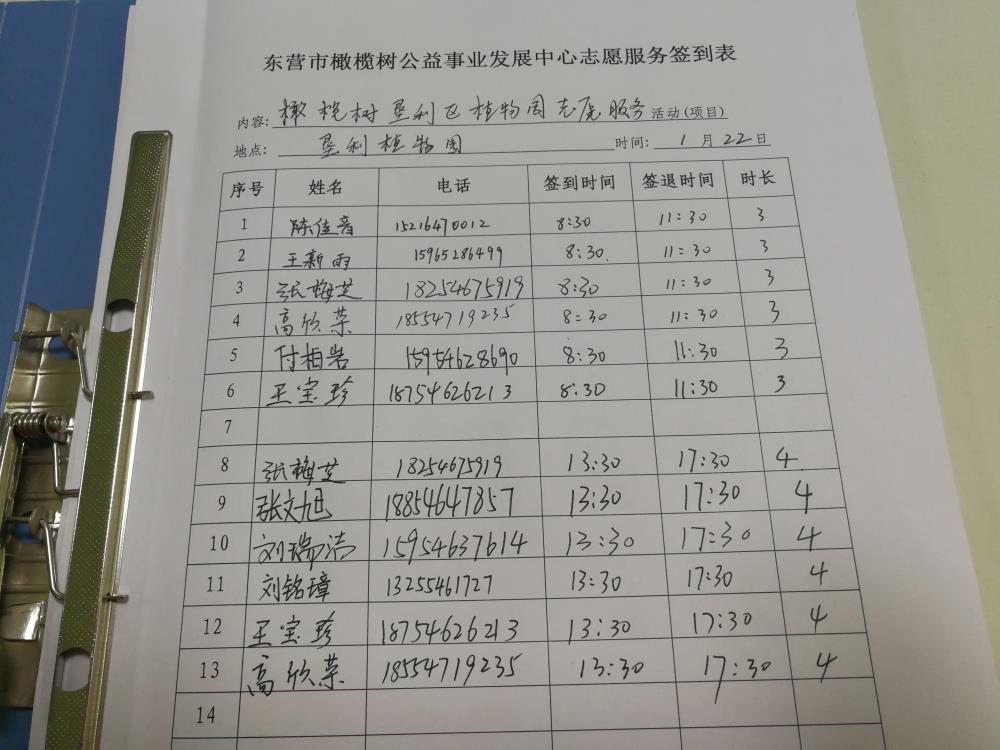 东营市橄榄树公益事业发展中心志愿服务签到表
内容: 橄榄树垦利区植物园志愿服务 活动(项目)
地点: 垦利植物园 时间: 1月22日
序号 姓名 电话 签到时间 签退时间 时长
1 陈佳音 15216470012 8:30 11:30 3
2 王新雨 15965286499 8:30. 11:30 3
3 张梅芝 18254675919 8:30 11:30 3
4 高欣荣 18554719235 8:30 11:30 3
5 付相岩 15954628690 8:30 11:30 3
6 王宝珍 18754626213 8:30 11:30 3
7
8 张梅芝 18254675919 13:30 17:30 4
9 张文旭 18854647857 13:30 17:30 4
10 刘瑞洁 15954637614 13:30 17:30 4
11 刘铭璋 13255461727 13:30 17:30 4
12 王宝珍 18754626213 13:30 17:30 4
13 高欣荣 18554719235 13:30 17:30 4
14